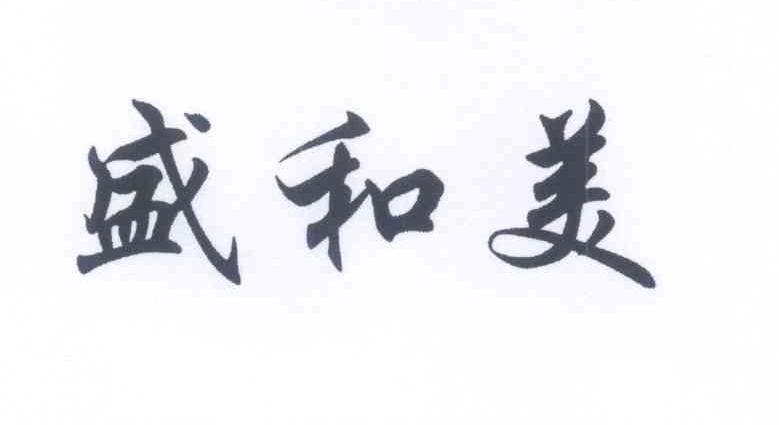 盛和美